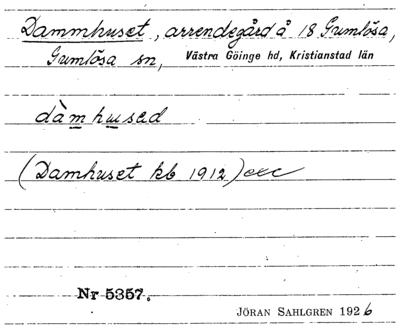 Dammhuset, arrendegård å 18 Gumlösa,
Gumlösa sn, Västra Göinge hd, Kristianstad län
dàmhused
(Damhuset kb 1912)
Nr 5357.
JÖRAN SAHLGREN 1926